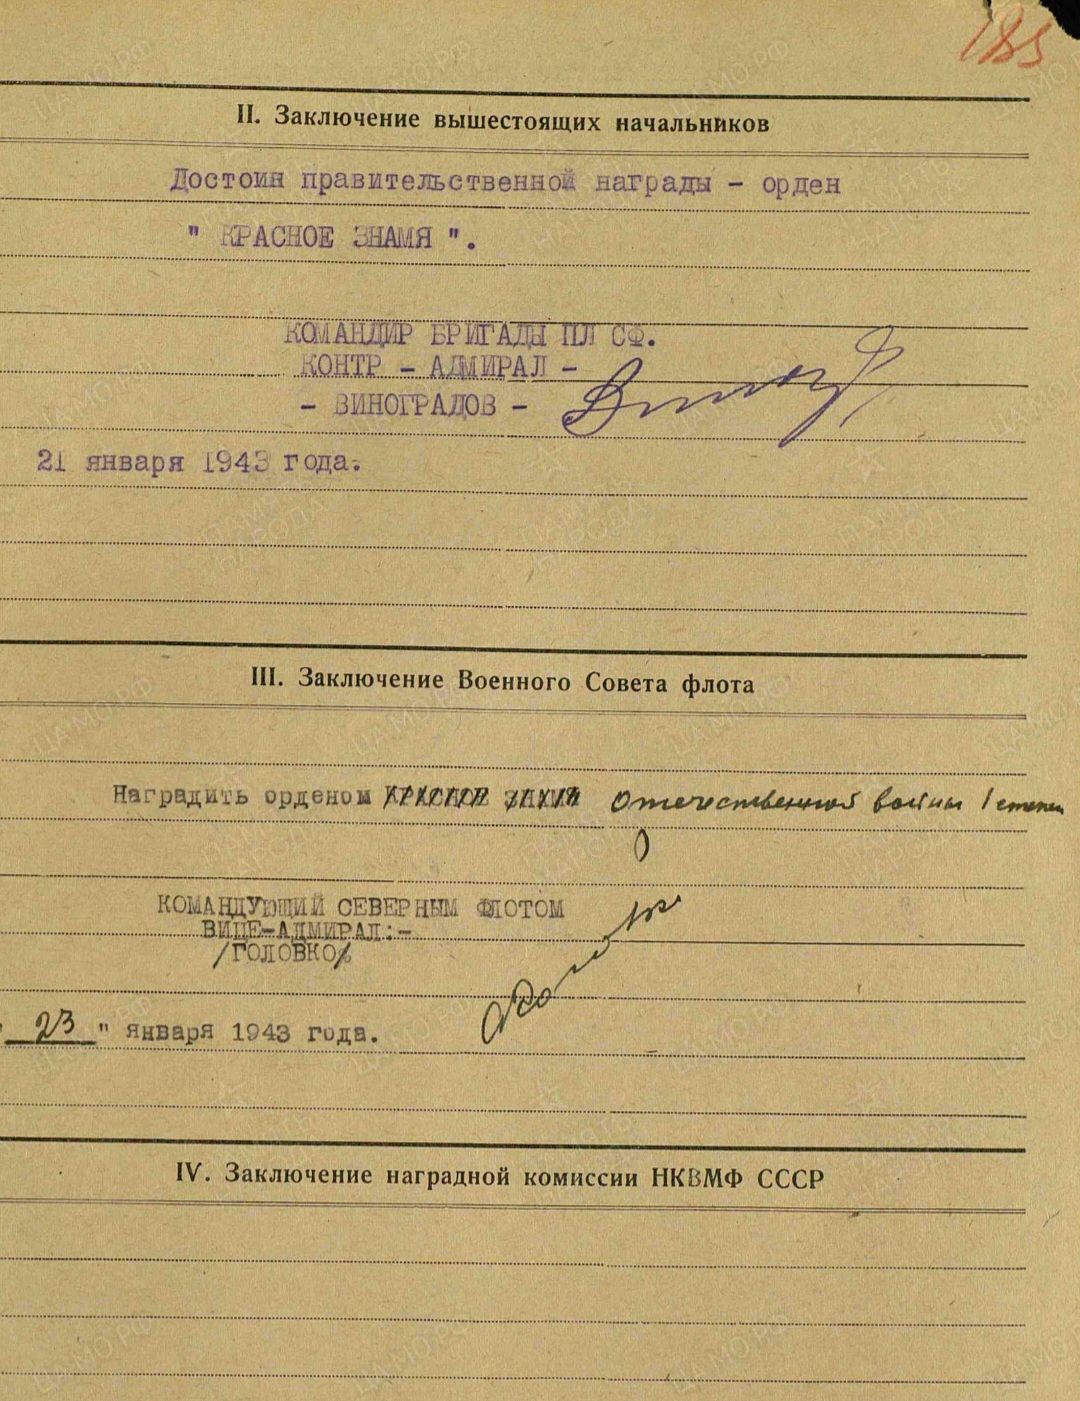 185
II. Заключение вышестоящих начальников
Достоин правительственной награды - орден
" КРАСНОЕ ЗНАМЯ ".
КОМАНДИР БРИГАДЫ ПЛ СФ.
КОНТР - АДМИРАЛ -
- ВИНОГРАДОВ -
21 января 1943 года.
III. Заключение Военного Совета флота
Наградить орденом КРАСНОЕ ЗНАМЯ Отечественной войны I степен
КОМАНДУЮЩИЙ СЕВЕРНЫМ ФЛОТОМ
ВИЦЕ-АДМИРАЛ:-
/ГОЛОВКО/
" 23 " января 1943 года.
IV. Заключение наградной комиссии НКВМФ СССР